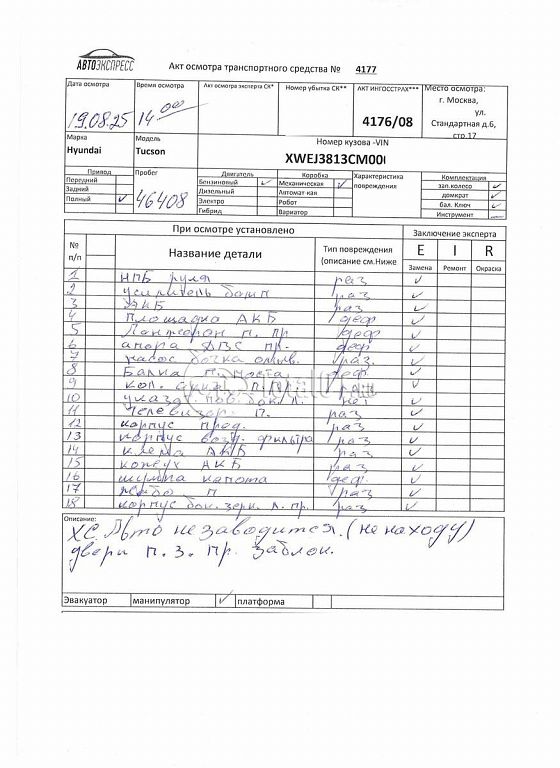 АВТОЭКСПРЕСС
Акт осмотра транспортного средства № 4177
Дата осмотра Время осмотра Акт осмотра эксперта СК* Номер убытка СК** АКТ ИНГОССТРАХ*** Место осмотра:
19.08.25 14 00 4176/08 г. Москва,
ул.
Стандартная д.6,
стр.17
Марка Модель Номер кузова -VIN
Hyundai Tucson XWEJ3813CM00
Привод Пробег Двигатель Коробка Характеристика повреждения Комплектация
Передний Бензиновый ✓ Механическая ✓ зап.колесо ✓
Задний 46408 Дизельный Автомат кая домкрат ✓
Полный ✓ Электро Робот бал. Ключ ✓
Гибрид Вариатор Инструмент —
При осмотре установлено Заключение эксперта
№ п/п Название детали Тип повреждения (описание см.Ниже E I R
Замена Ремонт Окраска
1 НПБ руля раз ✓
2 усилитель раз ✓
3 АКБ раз ✓
4 Площадка АКБ деф ✓
5 Лонжерон п. пр деф ✓
6 опора ДВС пр. деф ✓
7 насос бочка омыв. раз. ✓
8 Балка п. моста деф. ✓
9 ✓
10 указ. пов. бок. л. нет ✓
11 Телевизор п. раз ✓
12 корпус пред. раз ✓
13 корпус возд. фильтра раз ✓
14 клема АКБ раз ✓
15 кожух АКБ раз ✓
16 шумка капота деф. ✓
17 жабо п раз ✓
18 корпус бок. зерк. л. пр. раз ✓
Описание:
ХС. Авто не заводится. (не на ходу)
двери п. з. пр. заблок.
Эвакуатор манипулятор ✓ платформа